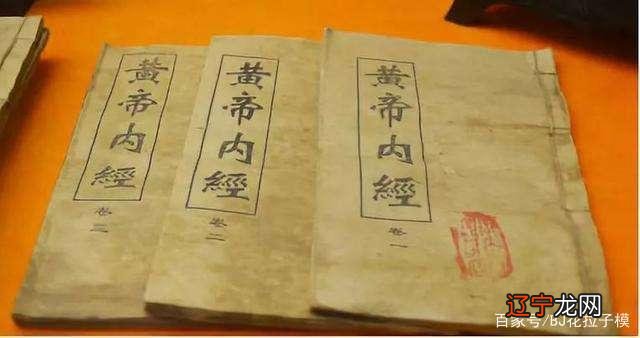 黄帝内經
卷三
黄帝内經
卷二
黄帝内經
卷一
辽宁龙网
百家号/BJ花拉子模